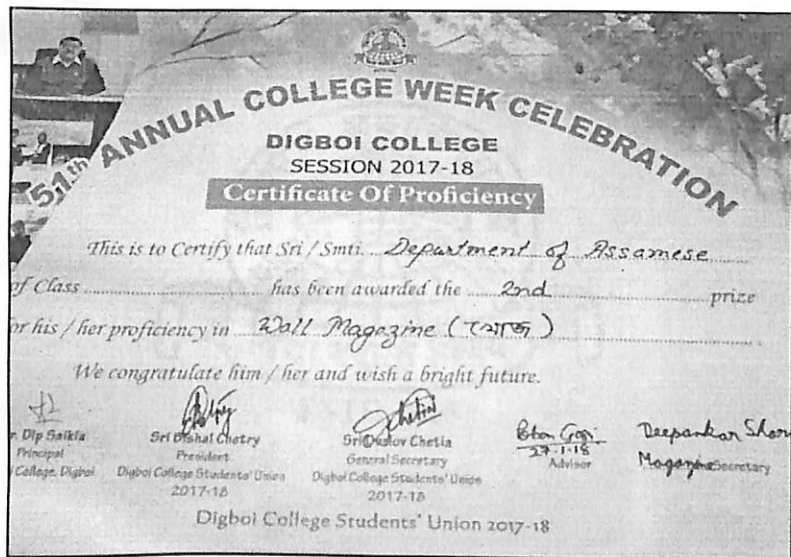 51th ANNUAL COLLEGE WEEK CELEBRATION
DIGBOI COLLEGE
SESSION 2017-18
Certificate Of Proficiency
This is to Certify that Sri / Smti. Department of Assamese
of Class has been awarded the 2nd prize
or his / her proficiency in Wall Magazine ( )
We congratulate him / her and wish a bright future.
r. Dip Saikia
Principal
College, Digboi
Sri Bishal Chetry
President
Digboi College Students' Union
2017-18
Chetia
General Secretary
Digboi College Students' Union
2017-18
27-1-18
Advisor
Deepankar
Magazine Secretary
Digboi College Students' Union 2017-18